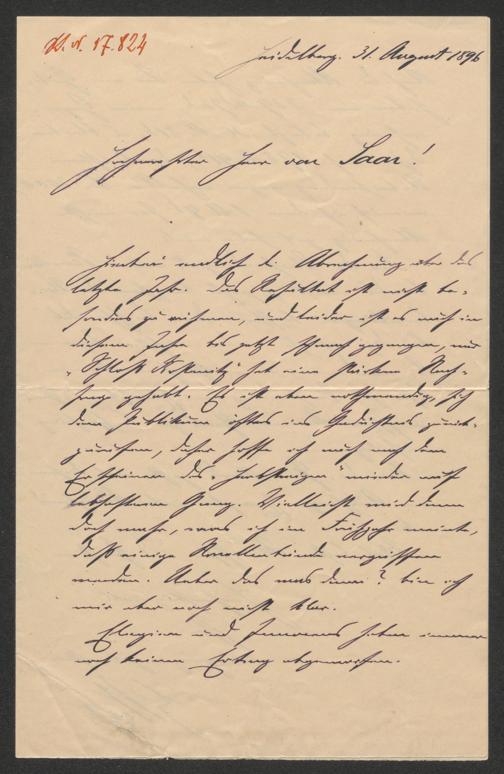 H. N. 17.824
Heidelberg. 31. August 1896
Hochverehrter Herr von Saar!
Hierbei endlich die Abrechnung über das
letzte Jahr. Das Resultat ist nicht be-
sonders zu rühmen, und leider ist es auch in
diesem Jahr bis jetzt schwach gegangen, nur
"Schloß Kostenitz" hat eine stärkere Nach-
frage gehabt. Es ist eben nothwendig, sich
dem Publikum öfters ins Gedächtnis zurück-
zurufen, daher hoffe ich auch nach dem
Erscheinen des "Herbstreigen" wieder auf
lebhafteren Gang. Vielleicht wird dann
doch wahr, was ich im Frühjahr meinte,
daß einige Novellenbände vergriffen
werden. Ueber das was dann? bin ich
mir aber noch nicht klar.
Elegien und Innocens haben immer
noch keinen Ertrag abgeworfen.